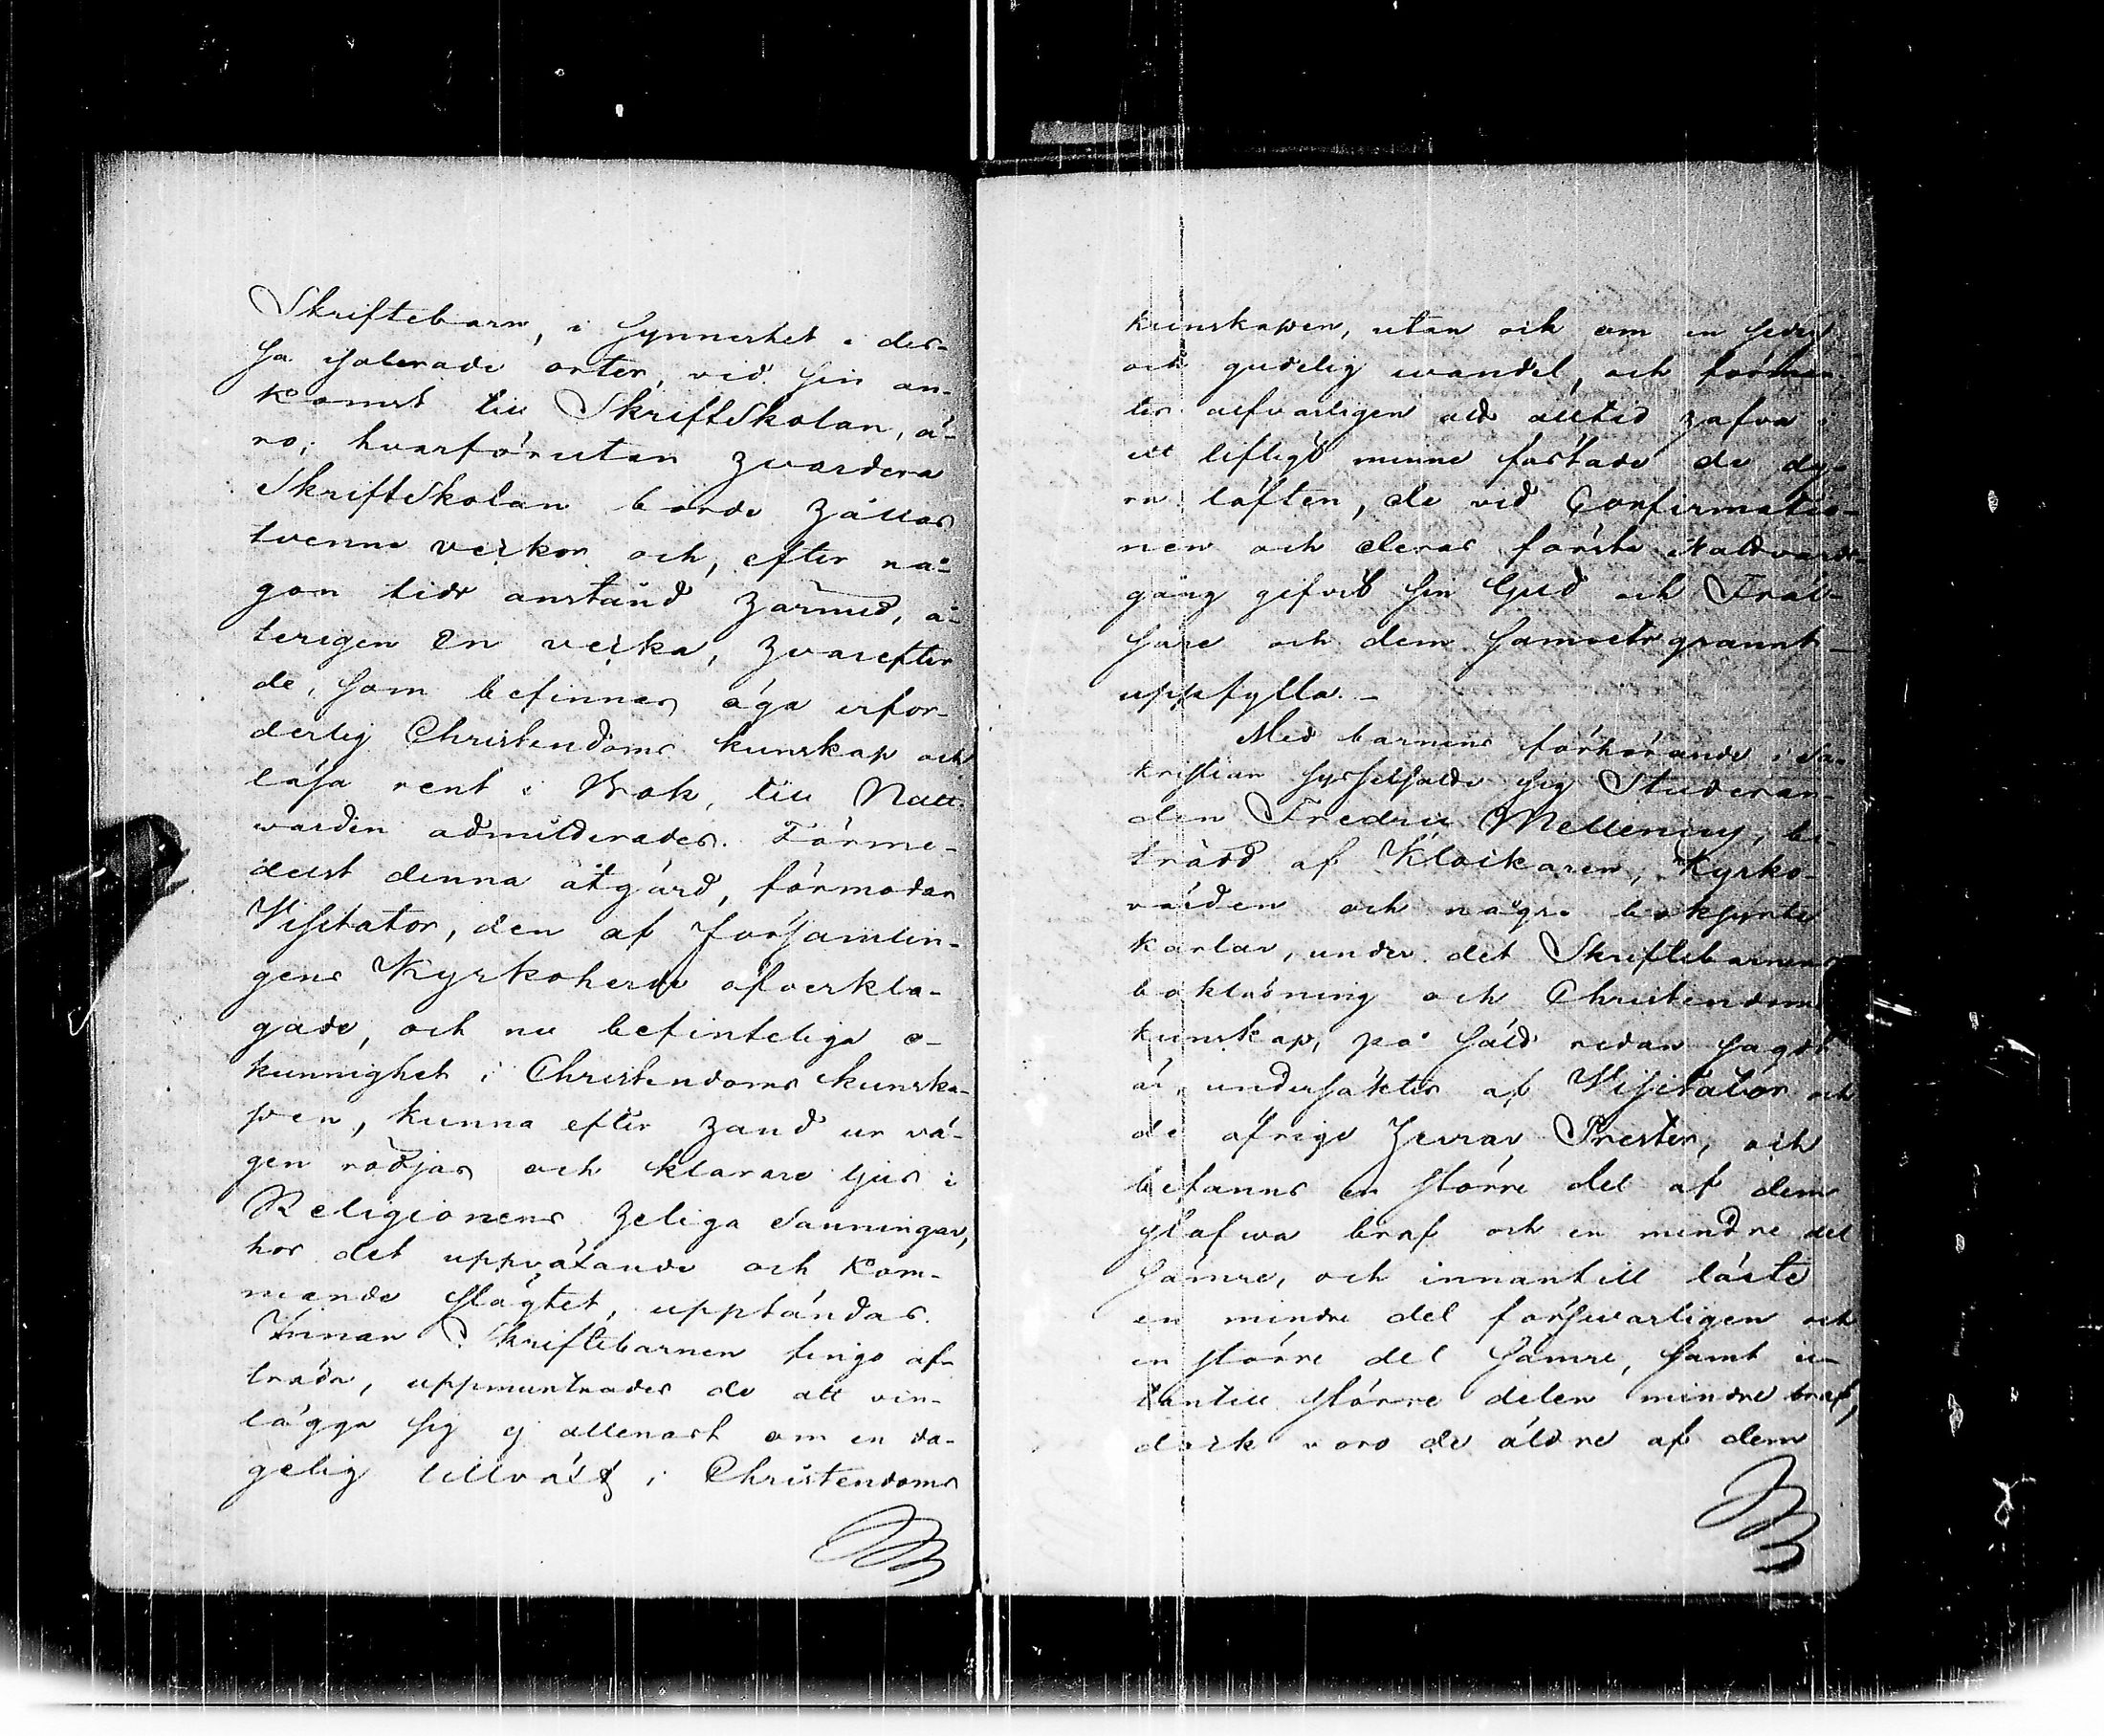 Skriftebarn, i synnerhet i des-
sa isolerade orter, vid sin an-
komst till Skriftskolan, ä-
ro; hvarförutan hvardera
Skriftskolan borde hållas
tvenne veckor och, efter nå-
gon tids anstånd härmed, å-
terigen en vecka, hvarefter
de, som befinnas äga erfor-
derlig Christendoms kunskap och
läsa rent i Bok, till Natt-
warden admitterades. Förme-
delst denna åtgärd, förmodar
Visitator, den af församlin-
gens Kyrkoherde öfverkla-
gade, och nu befinteliga o-
kunnighet i Christendoms kunska-
pen, kunna efter hand ur vä-
gen rödjas och klarare ljus i
Religionens heliga Sanningar,
hos det uppväxande och kom-
mande slägtet, upptändas.
Innan Skriftebarnen fingo af-
träda, uppmuntrades de att vin-
lägga sig ej allenast om en da-
gelig tillväxt i Christendoms
kunskapen, utan och om en sedig
och gudelig wandel, och
alfvarligen att alltid hafva i
ett lifligt minne fästade de dy-
ra löften, de vid Confirmatio-
nen och deras första Nattvards-
gång gifvit sin Gud och Fräl-
sare och dem samvetsgrannt
uppfylla.
Med barnens förhörande i Sa-
kristian sysselsatte sig Studeran-
den Fredric Mellenius, bi-
trädd af Klockaren, Kyrko-
värden och några boksynte
karlar, under det Skriftebarnens
bokläsning och Christendoms
kunskap, på sätt redan sagdt
är, undersöktes af Visitator och
de öfrige Herrar Prester, och
befanns en större del af dem
stafwa braf och en mindre del
sämre, och innantill läste
en mindre del försvarligen och
en större del sämre, samt u-
tantill större delen mindre braf,
dock voro de äldre af dem